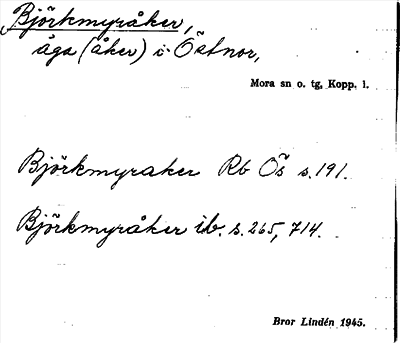 Björkmyråker,
äga (åker) i Östnor,
Mora sn o. tg, Kopp. l.
Björkmyraker Rb Ös s. 191.
Björkmyråker ib. s. 265, 714.
Bror Lindén 1945.